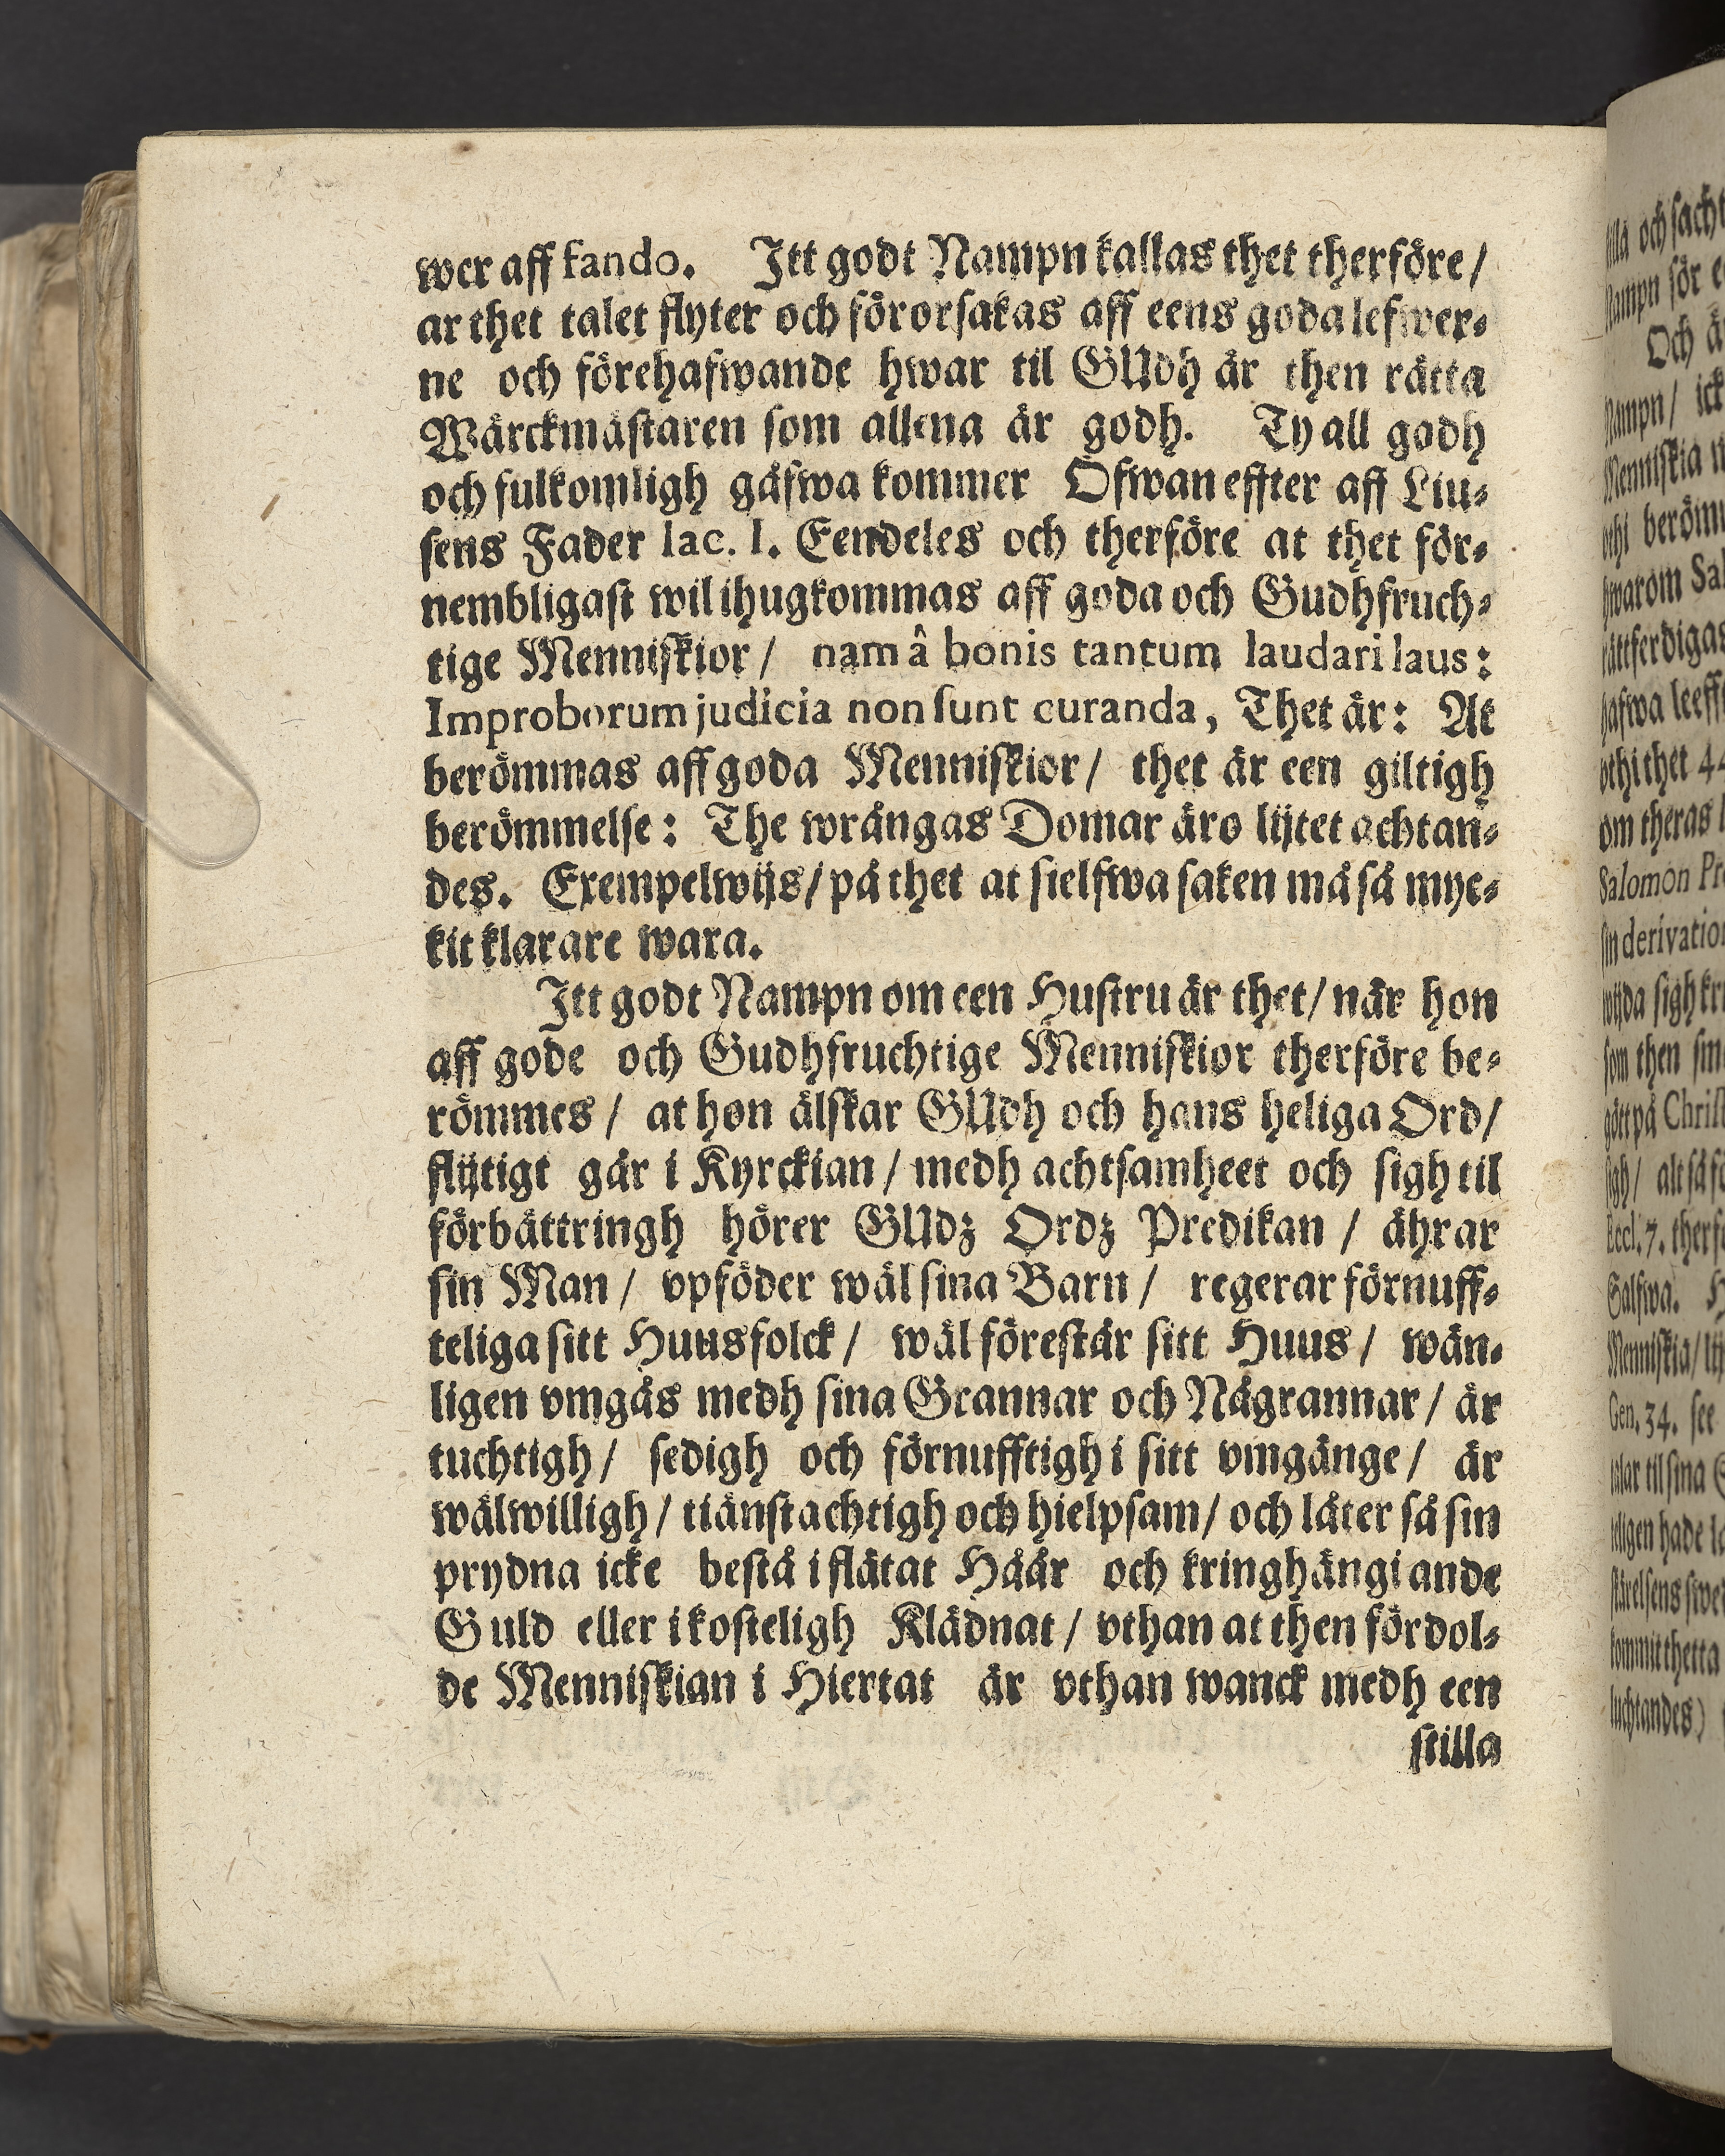 wer aff fando. Itt godt Nampn kallas thet therföre/
ar thet talet flyter och förorsakas aff eens goda lefwer-
ne och förehafwande hwar til GUdh är then rätta
Wärckmästaren som allena är godh. Ty all godh
och fulkomligh gåfwa kommer Ofwan effter aff Liu-
sens Fader Iac. I. Eendeles och therföre at thet för-
nembligast wil ihugkommas aff goda och Gudhfruch-
tige Menniskior/ nam â bonis tantum laudari laus:
Improborum judicia non sunt curanda, Thet är: At
berömmas aff goda Menniskior/ thet är een giltigh
berömmelse: The wrångas Domar äro lijtet achtan-
des. Exempelwijs/ på thet at sielfwa saken må så mye-
kit klarare wara.
Itt godt Nampn om een Hustru är thet/ när hon
aff gode och Gudhfruchtige Menniskior therföre be-
römmes/ at hon älskar GUdh och hans heliga Ord/
flijtigt går i Kyrckian/ medh achtsamheet och sigh til
förbättringh hörer GUdz Ordz Predikan/ ährar
sin Man/ vpföder wäl sina Barn/ regerar förnuff-
teliga sitt Huusfolck/ wäl förestår sitt Huus/ wän-
ligen vmgås medh sina Grannar och Någrannar/ är
tuchtigh/ sedigh och förnufftigh i sitt vmgänge/ är
wälwilligh/ tiänstachtigh och hielpsam/ och låter så sin
prydna icke bestå i flätat Håår och kringhängiande
Guld eller i kosteligh Klädnat/ vthan at then fördol-
de Menniskian i Hiertat är vthan wanck medh een
stilla